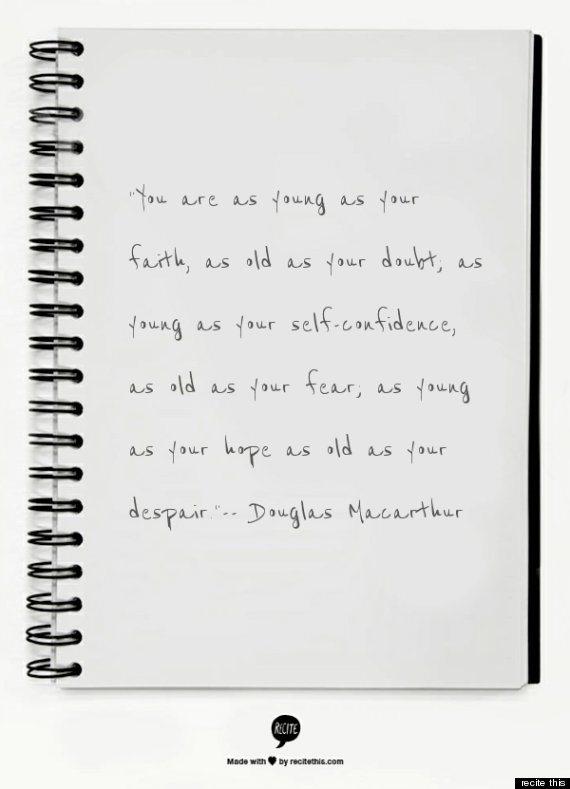 "You are as young as your
faith, as old as your doubt; as
young as your self-confidence,
as old as your fear; as young
as your hope as old as your
despair."-- Douglas Macarthur
RECITE
Made with ♥ by recitethis.com
recite this